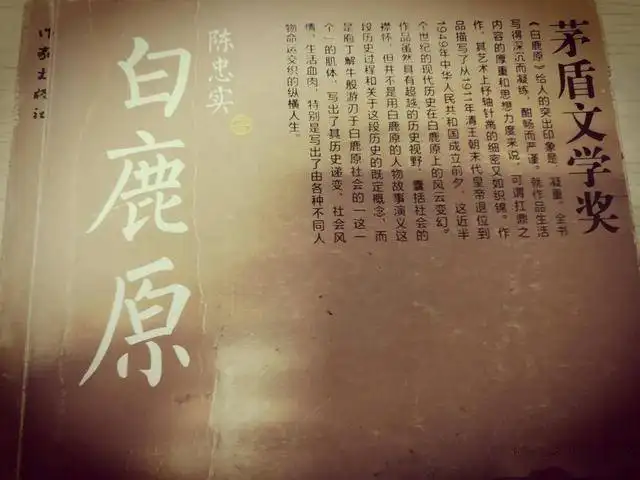 茅盾文学奖
《白鹿原》给人的突出印象是：凝重。全书
写得深沉而凝练，酣畅而严谨。就作品生活
内容的厚重和思想力度来说，可谓扛鼎之
作，其艺术上杼轴针黹的细密又如织锦。作
品描写了从1911年清王朝末代皇帝退位到
1949年中华人民共和国成立前夕，这近半
个世纪的现代历史在白鹿原上的风云变幻。
作品虽然具有超越的历史视野、囊括社会的
襟怀，但并不是用白鹿原的人物故事演义这
段历史过程和关于这段历史的既定概念，而
是庖丁解牛般游刃于白鹿原社会的“这一
个”的肌体，写出了其历史递变、社会风
情、生活血肉，特别是写出了由各种不同人
物命运交织的纵横人生。
陈忠实
白鹿原
作家出版社